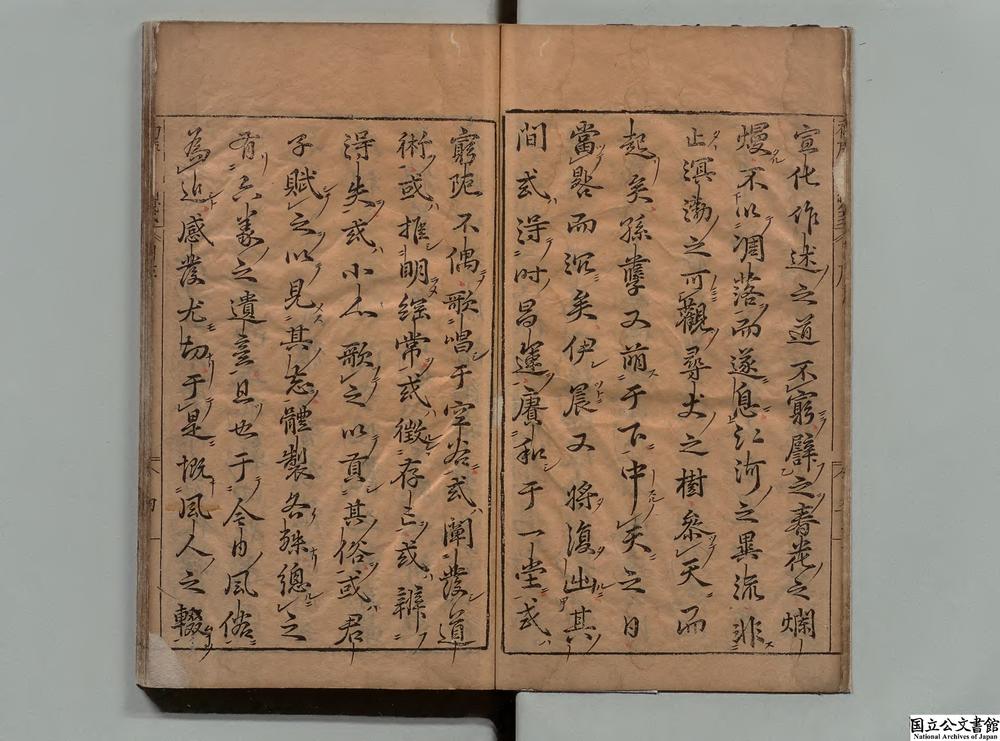 宣化作述之道不窮譬之春花之爛
熳不以凋落而遂息江河之異流非
止溟渤之可觀尋丈之樹參天而
起矣孫孽又萌于下中天之日
當晷而沉矣伊晨又將復出其
間或得时昌運賡和于一堂或
窮阨不偶歌唱于空谷或闡發道
術或推明經常或徵存亡或辨
得失或小人歌之以貢其俗或君
子賦之以見其志體製各殊總之
有六義之遺意且也于今日風俗
為近感發尤切于是慨風人之輟
国立公文書館
National Archives of Japan